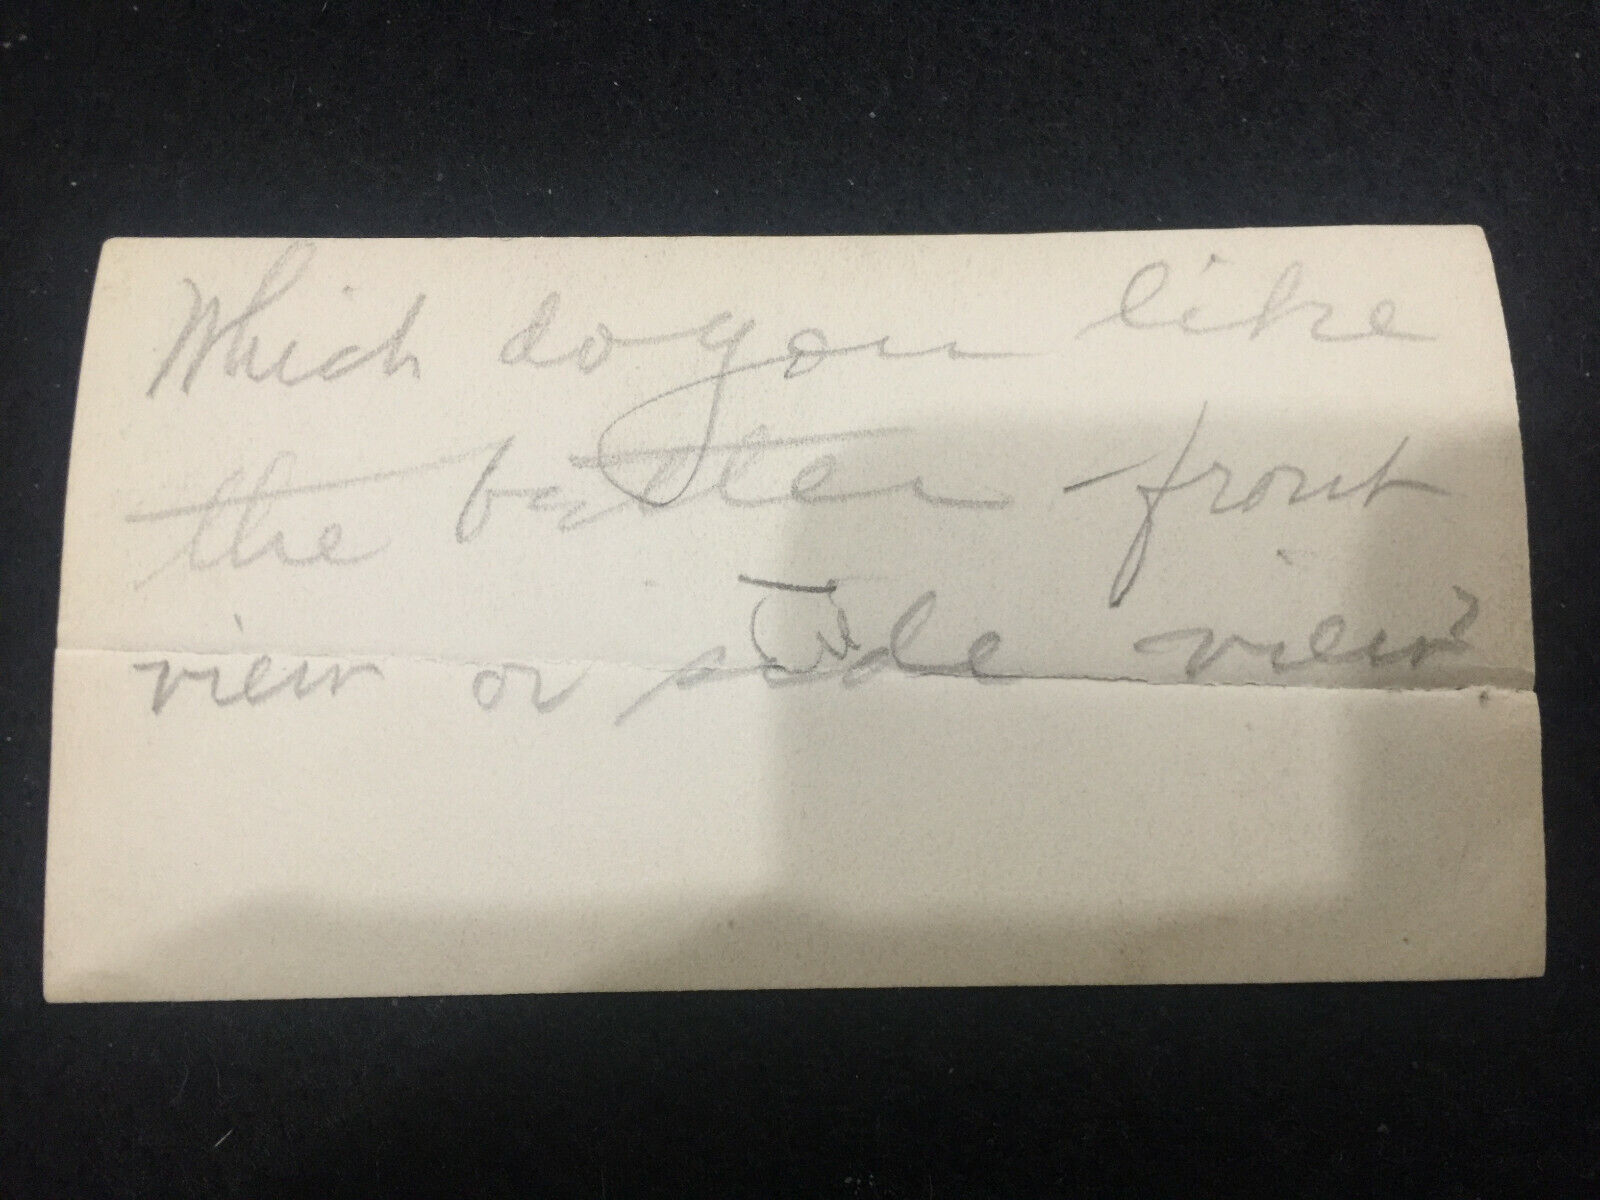 Which do you like
the better front
view or side view?